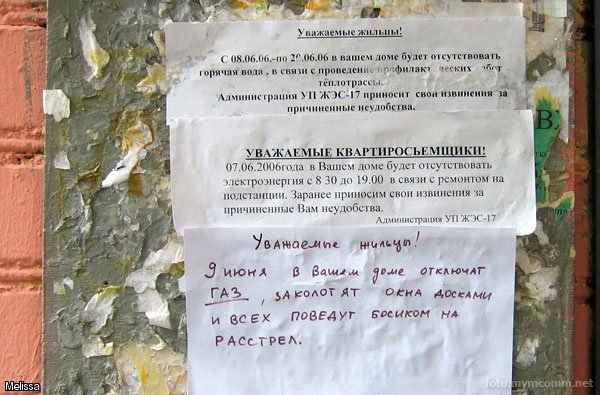 Уважаемые жильцы!
С 08.06.06.-по 2 .06.06 в вашем доме будет отсутствовать
горячая вода , в связи с проведение профилакт ческих бот
теплотрассы.
Администрация УП ЖЭС-17 приносит свои извинения за
причиненные неудобства.
УВАЖАЕМЫЕ КВАРТИРОСЬЕМЩИКИ!
07.06.2006года в Вашем доме будет отсутствовать
электроэнергия с 8 30 до 19.00 в связи с ремонтом на
подстанции. Заранее приносим свои извинения за
причиненные Вам неудобства.
Администрация УП ЖЭС-17
Уважаемые жильцы!
9 июня в Вашем доме отключат
ГАЗ , заколотят окна досками
и всех поведут босиком на
расстрел.
В
Melissa
foto.mymcomm.net